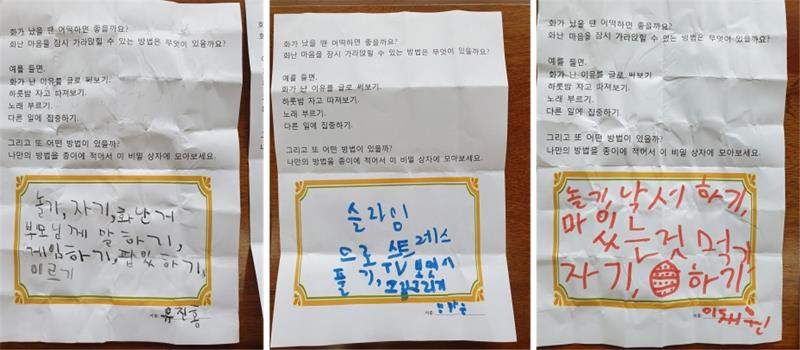 화가 났을 땐 어떡하면 좋을까요?
화난 마음을 잠시 가라앉힐 수 있는 방법은 무엇이 있을까요?
예를 들면,
화가 난 이유를 글로 써보기.
하룻밤 자고 따져보기.
노래 부르기.
다른 일에 집중하기.
그리고 또 어떤 방법이 있을까?
나만의 방법을 종이에 적어서 이 비밀 상자에 모아보세요.
놀기, 자기, 화난거
부모님께 말하기,
게임하기, 팝잇하기,
이르기
이름 유진홍
화가 났을 땐 어떡하면 좋을까요?
화난 마음을 잠시 가라앉힐 수 있는 방법은 무엇이 있을까요?
예를 들면,
화가 난 이유를 글로 써보기.
하룻밤 자고 따져보기.
노래 부르기.
다른 일에 집중하기.
그리고 또 어떤 방법이 있을까?
나만의 방법을 종이에 적어서 이 비밀 상자에 모아보세요.
슬라임
으로 스트레스
풀기, TV 보면서
그림그리기
이름
화가 났을 땐 어떡하면 좋을까요?
화난 마음을 잠시 가라앉힐 수 있는 방법은 무엇이 있을까요?
예를 들면,
화가 난 이유를 글로 써보기.
하룻밤 자고 따져보기.
노래 부르기.
다른 일에 집중하기.
그리고 또 어떤 방법이 있을까?
나만의 방법을 종이에 적어서 이 비밀 상자에 모아보세요.
놀기, 낙서하기,
마있는것 먹기,
자기, 하기
이름